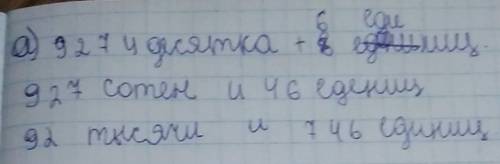 6 еди
а) 9274 десятка + 6 единиц.
927 сотен и 46 едениц
92 тысячи и 746 единиц